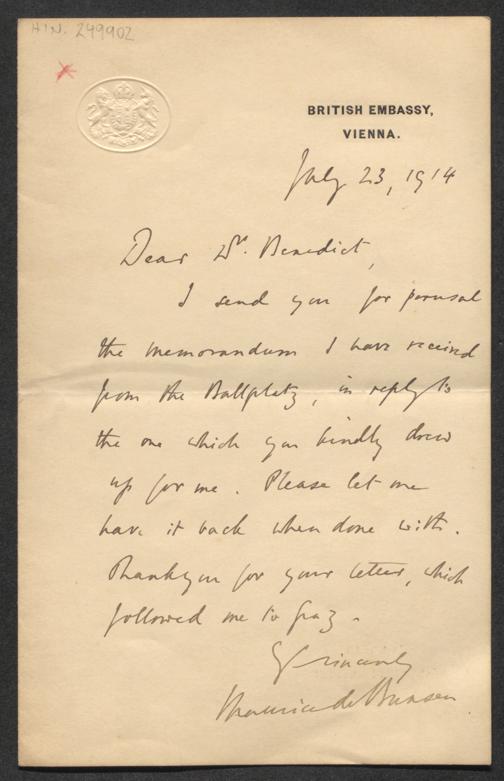 HIN. 249902
BRITISH EMBASSY,
VIENNA.
July 23, 1914
Dear Dr. Benedict,
I send you for perusal
the memorandum I have received
from the Ballplatz, in reply to
the one which you kindly drew
up for me. Please let me
have it back when done with.
Thankyou for your letter, which
followed me to Graz.
Yrs sincerely
Maurice de Bunsen